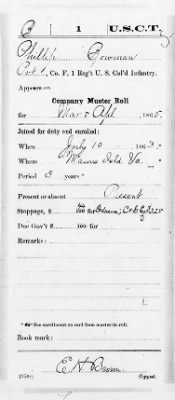 B 1 U.S.C.T.
Phillip Bowman
Pvt, Co. F, 1 Reg't U. S. Col'd Infantry.
Appears on
Company Muster Roll
for Mar & Apl, 1865.
Joined for duty and enrolled:
When July 10, 1863.
Where Masons Isld. Va.
Period 3 years*
Present or absent Present
Stoppage, $ 100 for
Due Gov't $ 100 for
Remarks:
*See enrollment on card from muster-in roll.
Book mark:
E. H. Brown
Copyist.